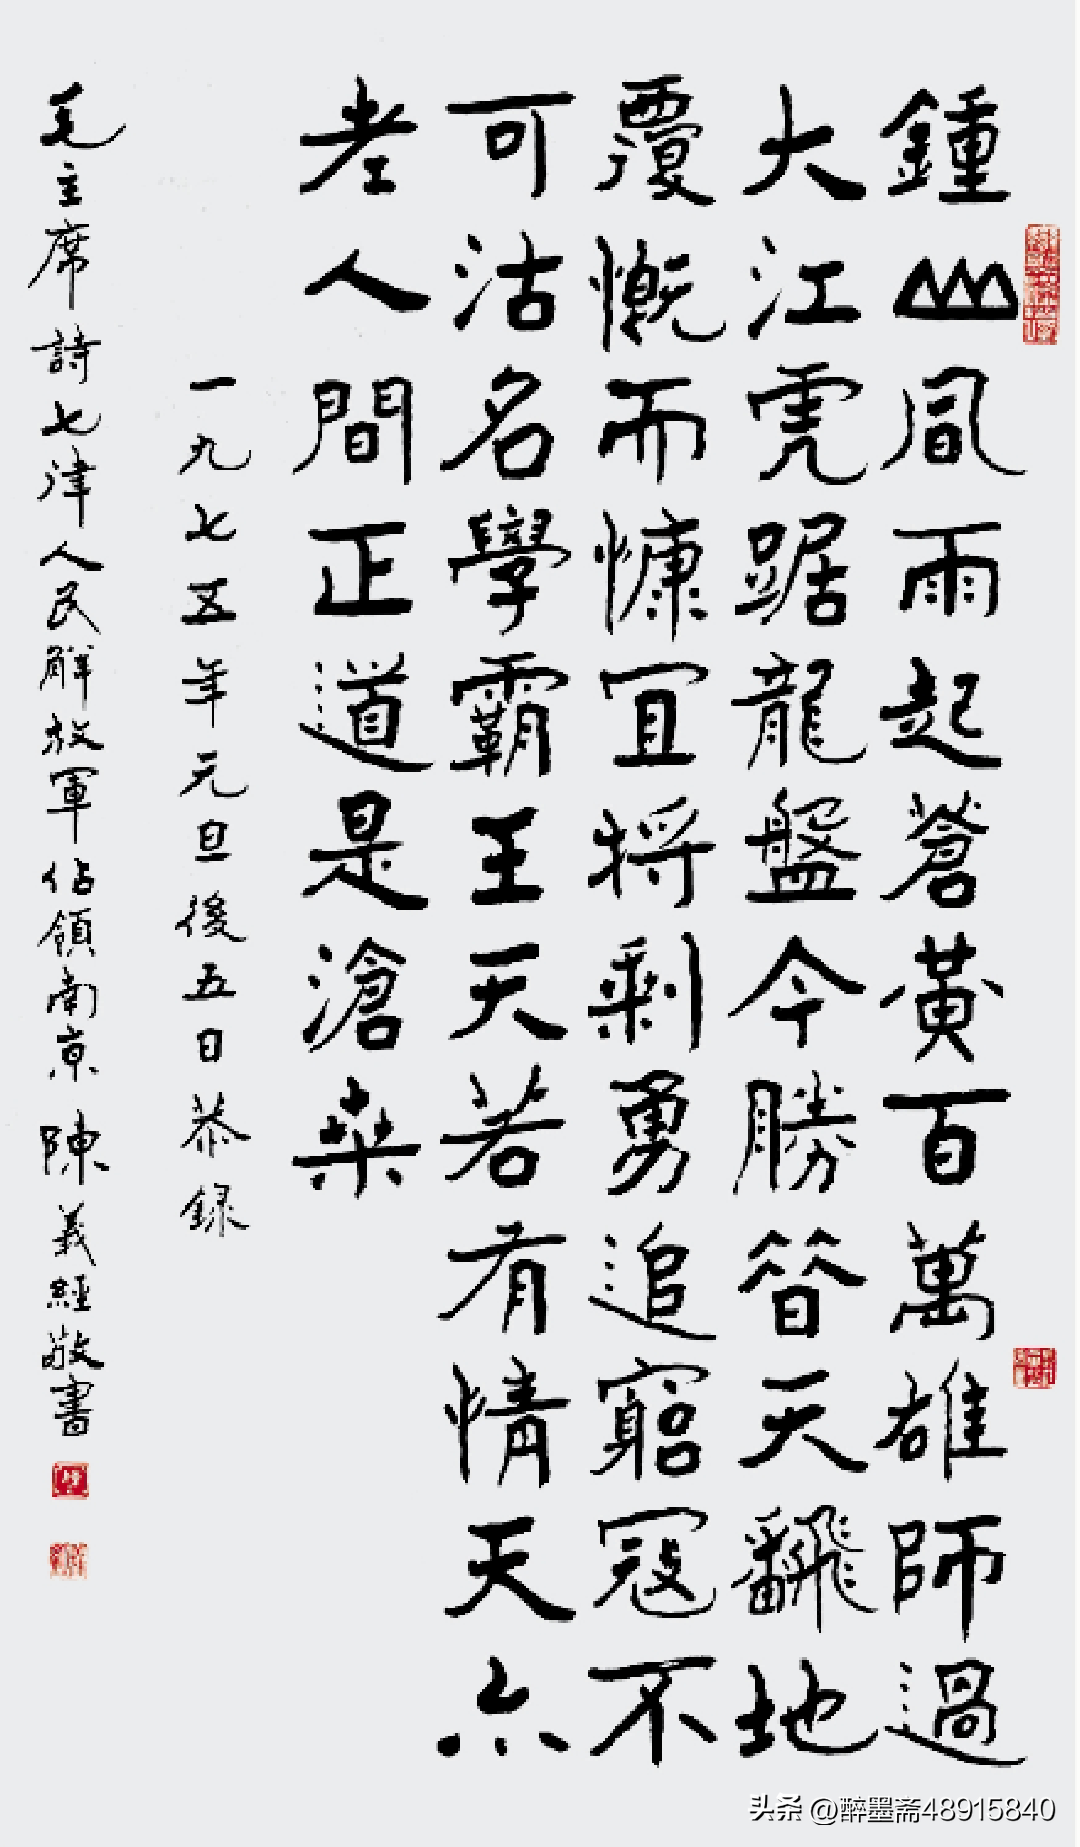 鍾山風雨起蒼黃百萬雄師過
大江虎踞龍盤今勝昔天翻地
覆慨而慷宜將剩勇追窮寇不
可沽名學霸王天若有情天亦
老人間正道是滄桑
一九七五年元旦後五日恭錄
毛主席詩七律人民解放軍佔領南京 陳義經敬書
头条 @醉墨斋48915840